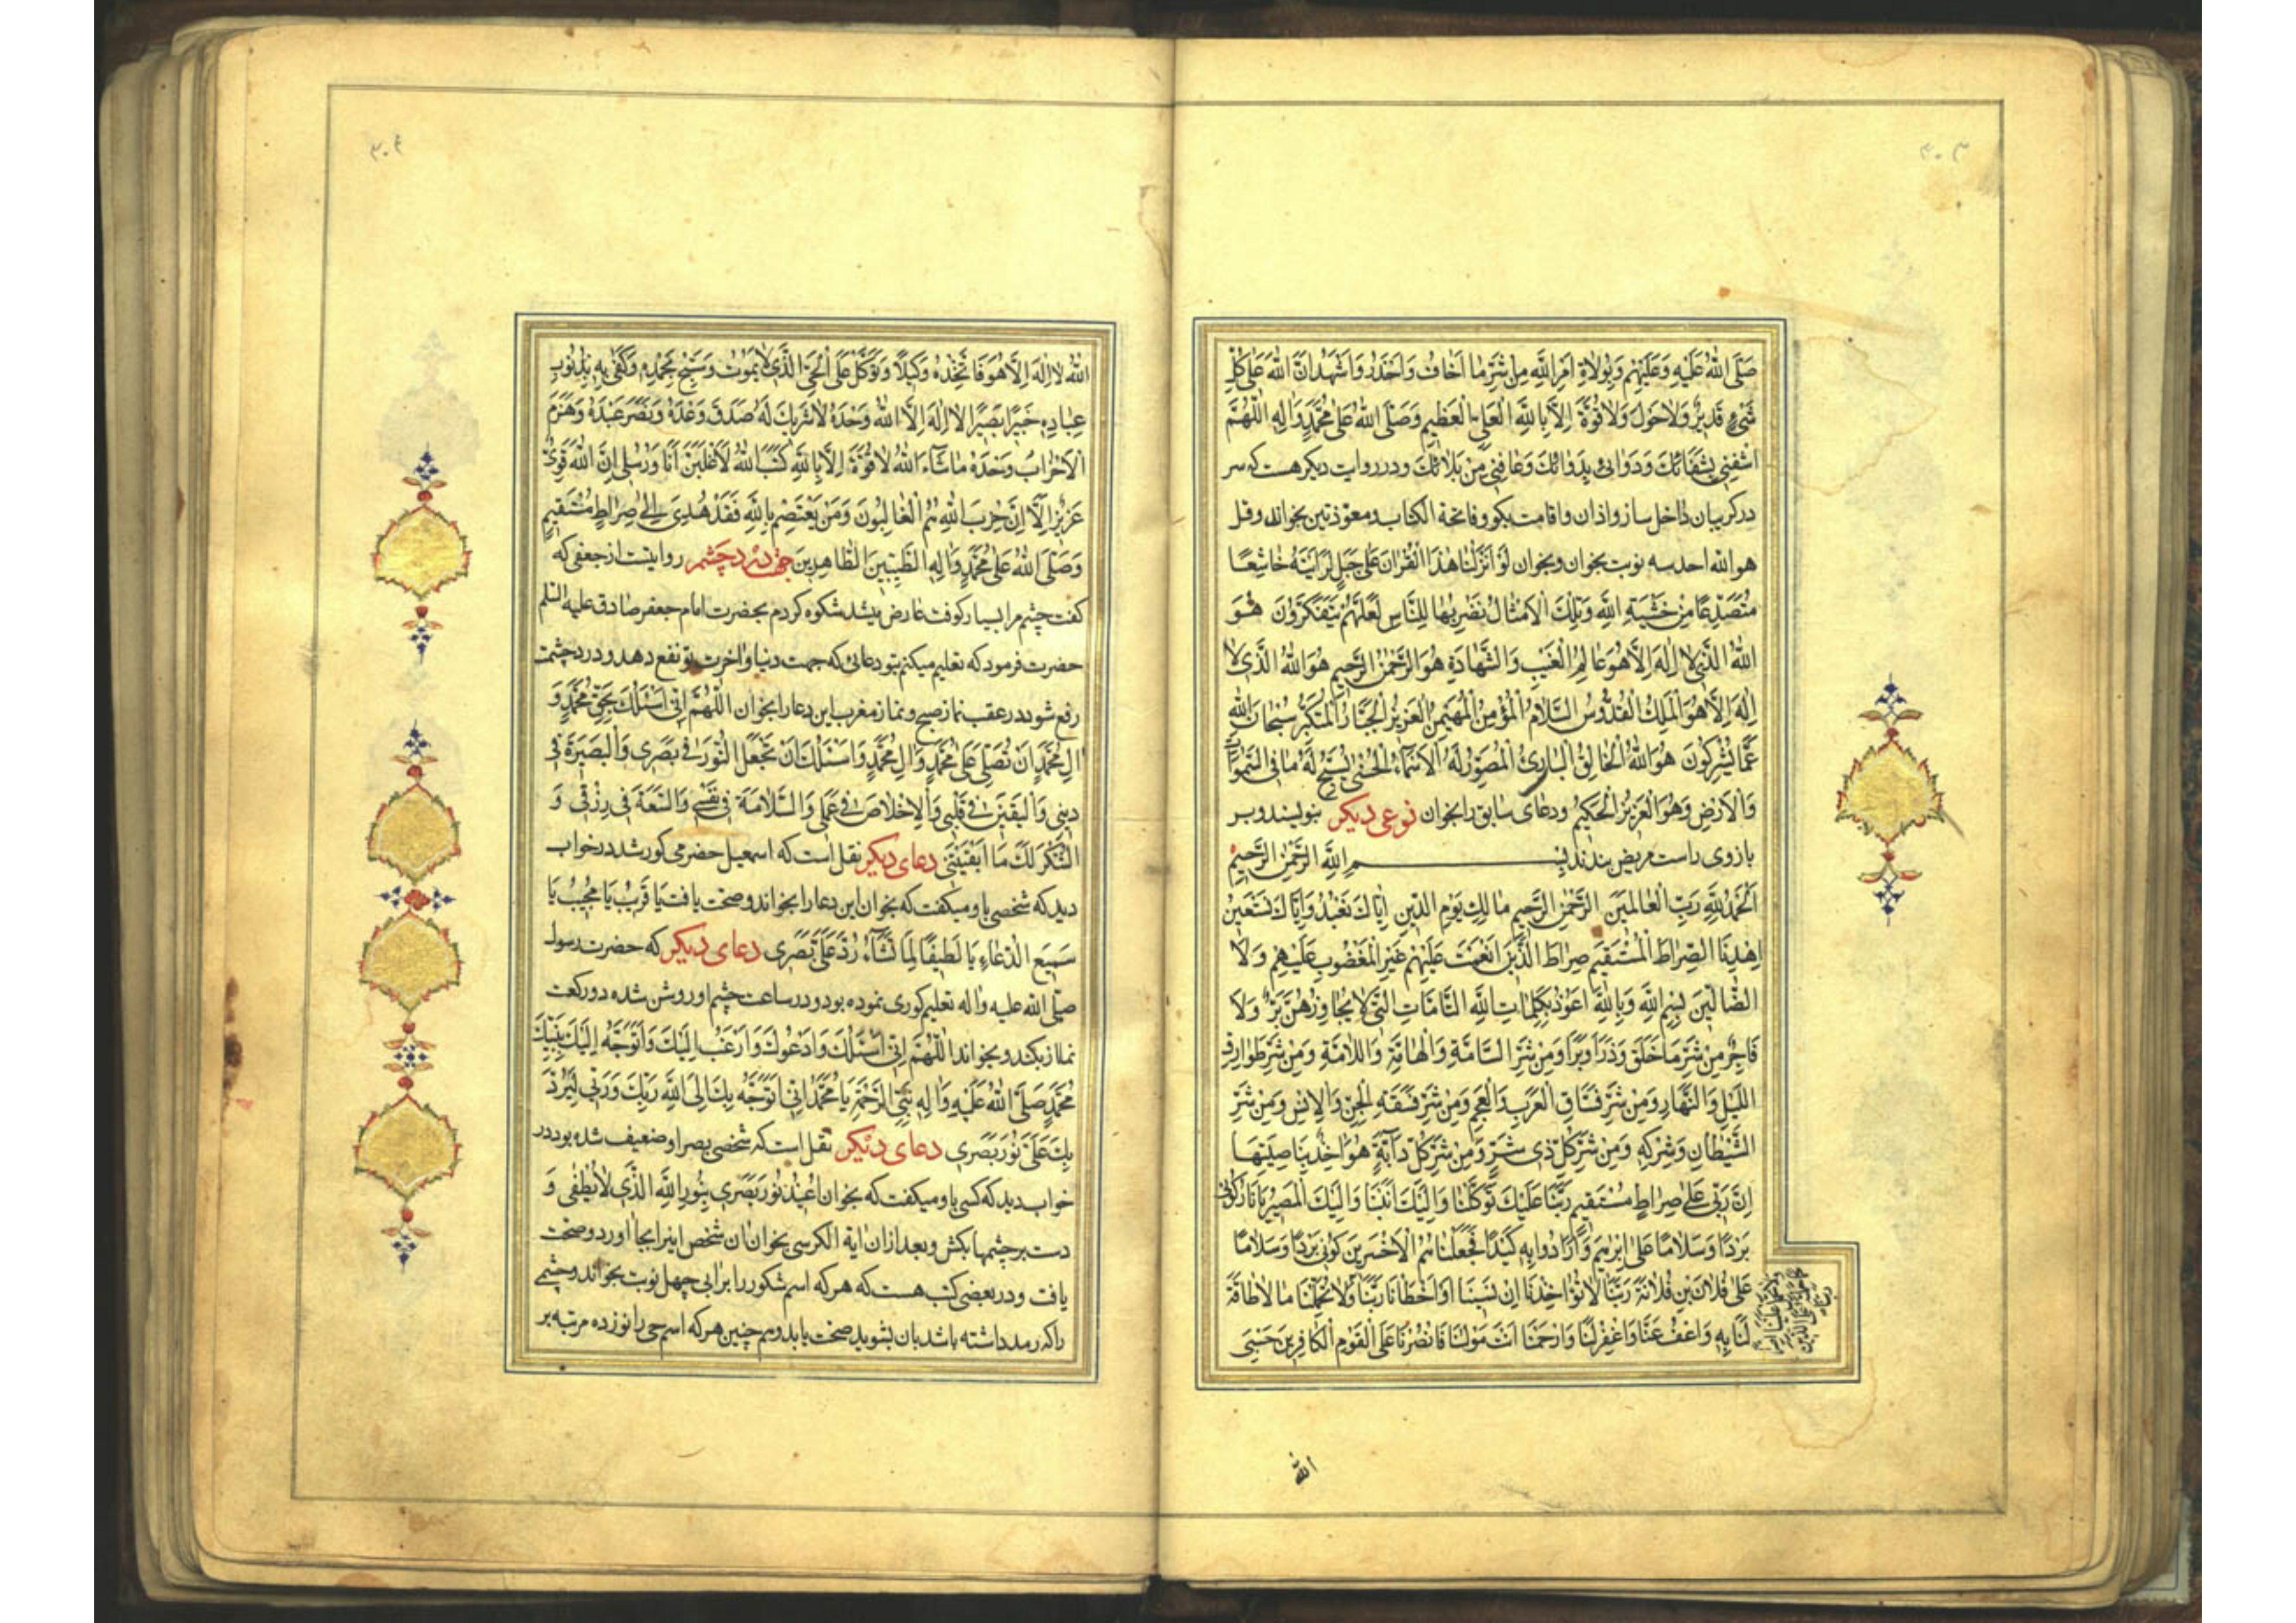 ۳۰۳
صَلَّى اللهُ عَلَيْهِ وَعَلَيْهِمْ وَبِوُلاةِ اَمْرِ اللهِ مِنْ شَرِّ ما اَخافُ وَاَحْذَرُ وَاَشْهَدُ اَنَّ اللهَ عَلى كُلِّ
شَيْءٍ قَديرٌ وَلا حَوْلَ وَلا قُوَّةَ اِلَّا بِاللهِ الْعَلِيِّ الْعَظيمِ وَصَلَّى اللهُ عَلى مُحَمَّدٍ وَالِهِ اَللّهُمَّ
اشْفِني بِشِفائِكَ وَدَوائي بِدَوائِكَ وَعافِني مِنْ بَلائِكَ ودر روایت دیکر هست که سر
در کریبان داخل ساز و اذان و اقامت بکو و فاتحة الکتاب و معوذتین بخواند وقل
هو الله احد سه نوبت بخوان و بخوان لَوْ اَنْزَلْنا هذَا الْقُرْانَ عَلى جَبَلٍ لَرَاَيْتَهُ خاشِعًا
مُتَصَدِّعًا مِنْ خَشْيَةِ اللهِ وَتِلْكَ الْاَمْثالُ نَضْرِبُها لِلنَّاسِ لَعَلَّهُمْ يَتَفَكَّرُونَ هُوَ
اللهُ الَّذي لا اِلهَ اِلَّا هُوَ عالِمُ الْغَيْبِ وَالشَّهادَةِ هُوَ الرَّحْمنُ الرَّحيمُ هُوَ اللهُ الَّذي لا
اِلهَ اِلَّا هُوَ الْمَلِكُ الْقُدُّوسُ السَّلامُ الْمُؤْمِنُ الْمُهَيْمِنُ الْعَزيزُ الْجَبَّارُ الْمُتَكَبِّرُ سُبْحانَ اللهِ
عَمَّا يُشْرِكُونَ هُوَ اللهُ الْخالِقُ الْبارِئُ الْمُصَوِّرُ لَهُ الْاَسْماءُ الْحُسْنى يُسَبِّحُ لَهُ ما فِي السَّمواتِ
وَالْاَرْضِ وَهُوَ الْعَزيزُ الْحَكيمُ ودعای سابق را بخوان نوعی دیکر بنویسند و بر
بازوی راست مریض بندند بِسْمِ اللهِ الرَّحْمنِ الرَّحيمِ
اَلْحَمْدُ لِلّهِ رَبِّ الْعالَمينَ الرَّحْمنِ الرَّحيمِ مالِكِ يَوْمِ الدّينِ اِيَّاكَ نَعْبُدُ وَاِيَّاكَ نَسْتَعينُ
اِهْدِنَا الصِّراطَ الْمُسْتَقيمَ صِراطَ الَّذينَ اَنْعَمْتَ عَلَيْهِمْ غَيْرِ الْمَغْضُوبِ عَلَيْهِمْ وَلَا
الضَّالّينَ بِسْمِ اللهِ وَبِاللهِ اَعُوذُ بِكَلِماتِ اللهِ التَّامَّاتِ الَّتي لا يُجاوِزُهُنَّ بَرٌّ وَلا
فاجِرٌ مِنْ شَرِّ ما خَلَقَ وَذَرَاَ وَبَرَاَ وَمِنْ شَرِّ السَّامَّةِ وَالْهامَّةِ وَاللَّامَّةِ وَمِنْ شَرِّ طَوارِقِ
اللَّيْلِ وَالنَّهارِ وَمِنْ شَرِّ فُسَّاقِ الْعَرَبِ وَالْعَجَمِ وَمِنْ شَرِّ فَسَقَةِ الْجِنِّ وَالْاِنْسِ وَمِنْ شَرِّ
الشَّيْطانِ وَشَرَكِهِ وَمِنْ شَرِّ كُلِّ ذي شَرٍّ وَمِنْ شَرِّ كُلِّ دابَّةٍ هُوَ اخِذٌ بِناصِيَتِها
اِنَّ رَبّي عَلى صِراطٍ مُسْتَقيمٍ رَبَّنا عَلَيْكَ تَوَكَّلْنا وَاِلَيْكَ اَنَبْنا وَاِلَيْكَ الْمَصيرُ يا نارُ كُوني
بَرْدًا وَسَلامًا عَلى اِبْرهيمَ وَاَرادُوا بِهِ كَيْدًا فَجَعَلْناهُمُ الْاَخْسَرينَ كُوني بَرْدًا وَسَلامًا
عَلى فُلانِ بْنِ فُلانَةَ رَبَّنا لا تُؤاخِذْنا اِنْ نَسينا اَوْ اَخْطَاْنا رَبَّنا وَلا تُحَمِّلْنا ما لا طاقَةَ
لَنا بِهِ وَاعْفُ عَنَّا وَاغْفِرْ لَنا وَارْحَمْنا اَنْتَ مَوْلانا فَانْصُرْنا عَلَى الْقَوْمِ الْكافِرينَ حَسْبِيَ
الله
۳۰۴
اللهُ لا اِلهَ اِلَّا هُوَ فَاتَّخِذْهُ وَكيلًا وَتَوَكَّلْ عَلَى الْحَيِّ الَّذي لا يَمُوتُ وَسَبِّحْ بِحَمْدِهِ وَكَفى بِهِ بِذُنُوبِ
عِبادِهِ خَبيرًا بَصيرًا لا اِلهَ اِلَّا اللهُ وَحْدَهُ لا شَريكَ لَهُ صَدَقَ وَعْدَهُ وَنَصَرَ عَبْدَهُ وَهَزَمَ
الْاَحْزابَ وَحْدَهُ ما شاءَ اللهُ لا قُوَّةَ اِلَّا بِاللهِ كَتَبَ اللهُ لَاَغْلِبَنَّ اَنَا وَرُسُلي اِنَّ اللهَ قَوِيٌّ
عَزيزٌ اَلا اِنَّ حِزْبَ اللهِ هُمُ الْغالِبُونَ وَمَنْ يَعْتَصِمْ بِاللهِ فَقَدْ هُدِيَ اِلى صِراطٍ مُسْتَقيمٍ
وَصَلَّى اللهُ عَلى مُحَمَّدٍ وَالِهِ الطَّيِّبينَ الطَّاهِرينَ جهة درد چشم روایتست از جعفی که
کفت چشم مرا بسیار کوفت عارض میشد شکوه کردم بحضرت امام جعفر صادق علیه السلم
حضرت فرمود که تعلیم میکنم بتو دعائی که جهت دنیا و اخرت تو نفع دهد و درد چشمت
رفع شود در عقب نماز صبح و نماز مغرب این دعا را بخوان اَللّهُمَّ اِنّي اَسْئَلُكَ بِحَقِّ مُحَمَّدٍ وَ
الِ مُحَمَّدٍ اَنْ تُصَلِّيَ عَلى مُحَمَّدٍ وَالِ مُحَمَّدٍ وَاَسْئَلُكَ اَنْ تَجْعَلَ النُّورَ في بَصَري وَالْبَصيرَةَ في
ديني وَالْيَقينَ في قَلْبي وَالْاِخْلاصَ في عَمَلي وَالسَّلامَةَ في نَفْسي وَالسَّعَةَ في رِزْقي وَ
الشُّكْرَ لَكَ ما اَبْقَيْتَني دعای دیکر نقل است که اسمعیل حضرمی کور شد در خواب
دید که شخصی باو میکفت که بخوان این دعا را بخواند و صحت یافت يا قَريبُ يا مُجيبُ يا
سَميعَ الدُّعاءِ يا لَطيفًا لِما تَشاءُ رُدَّ عَلَيَّ بَصَري دعای دیکر که حضرت رسول
صلّی الله علیه واله تعلیم کوری نموده بود و در ساعت چشم او روشن شده دو رکعت
نماز بکند و بخواند اَللّهُمَّ اِنّي اَسْئَلُكَ وَاَدْعُوكَ وَاَرْغَبُ اِلَيْكَ وَاَتَوَجَّهُ اِلَيْكَ بِنَبِيِّكَ
مُحَمَّدٍ صَلَّى اللهُ عَلَيْهِ وَالِهِ نَبِيِّ الرَّحْمَةِ يا مُحَمَّدُ اِنّي اَتَوَجَّهُ بِكَ اِلَى اللهِ رَبِّكَ وَرَبّي لِيَرُدَّ
بِكَ عَلَيَّ نُورَ بَصَري دعای دیکر نقل است که شخصی بصر او ضعیف شده بود در
خواب دید که کسی باو میکفت که بخوان اُعيذُ نُورَ بَصَري بِنُورِ اللهِ الَّذي لا يُطْفى وَ
دست بر چشمها بکش و بعد از ان ایة الکرسی بخوان ان شخص اینرا بجا اورد و صحت
یافت و در بعضی کتب هست که هر که اسم شکور را برابی چهل نوبت بخواند و چشمی
را که رمد داشته باشد بان بشوید صحت یابد و هم چنین هر که اسم حی را نوزده مرتبه بر